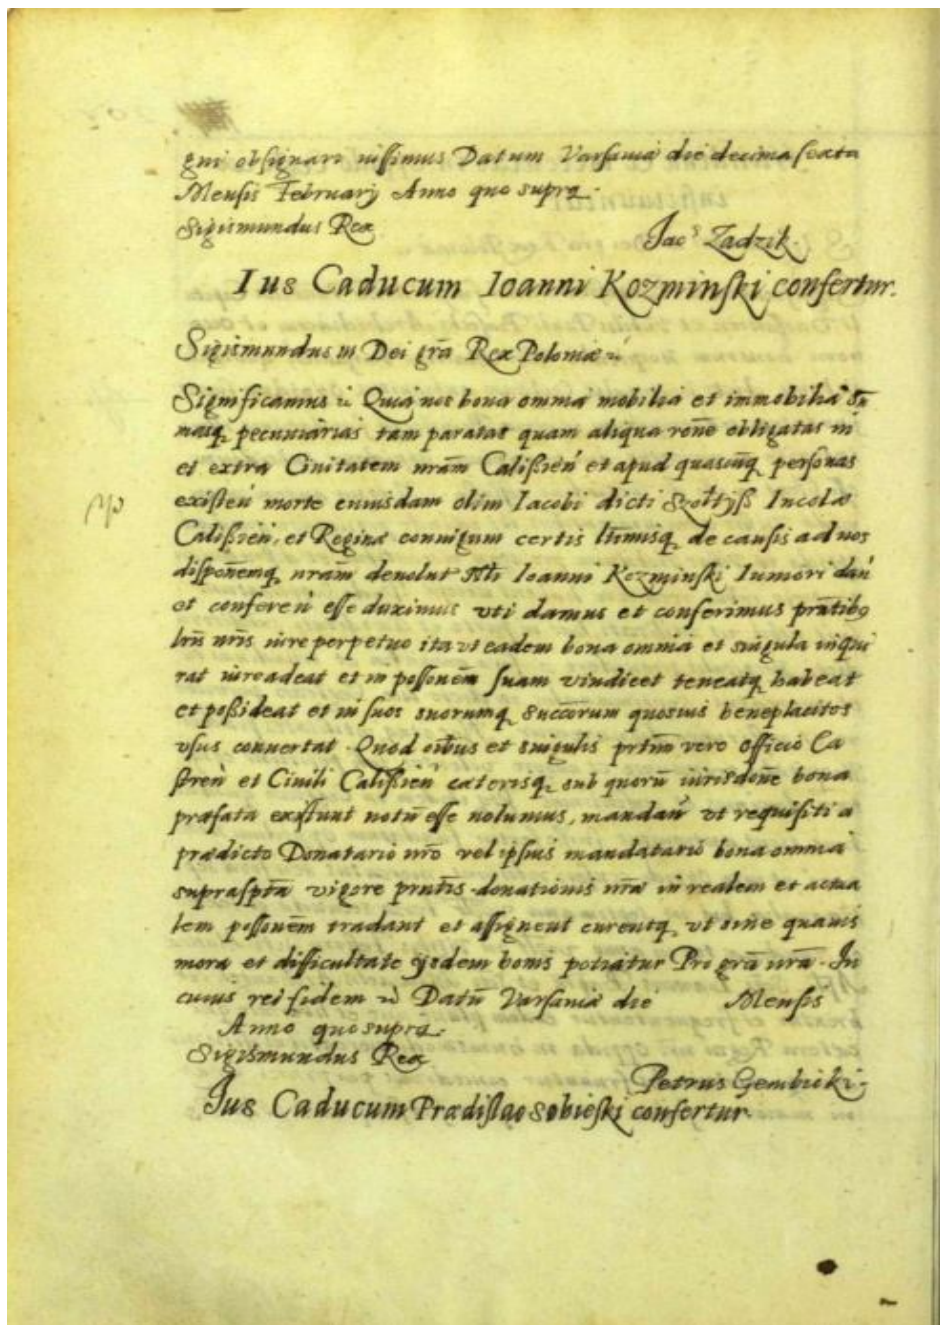 gni obsignari iussimus Datum Varsaviæ die decima sexta
Mensis Februarij Anno quo supra.
Sigismundus Rex
Jacs Zadzik.
Ius Caducum Ioanni Kozminski confertur.
Sigismundus III Dei grã Rex Poloniæ
Significamus Quia nos bona omnia mobilia et immobilia sũ
masq pecuniarias tam paratas quam aliqua rõne obligatas in
et extra Civitatem nrãm Calissień et apud quascũq personas
existeń morte cuiusdam olim Iacobi dicti Szołtyss Incolæ
Calissień, et Reginæ coniugum certis ltimisq de causis ad nos
dispõnemq nrãm devolut Nbli Ioanni Kozminski Iuniori dań
et confereń esse duximus uti damus et conferimus prñtibq
lrĩs nrĩs iure perpetuo ita ut eadem bona omnia et singula inqui
rat iure adeat et in possõnem suam vindicet teneatq habeat
et possideat et in suos suorumq succõrum quosvis beneplacitos
usus convertat. Quod oĩbus et singulis prtĩm vero officio Ca
streń et Civili Calissień cæterisq sub quorũ iurisdõne bona
præfata existunt notũ esse volumus, mandań ut requisiti a
prædicto Donatario nrõ vel ipsius mandatario bona omnia
suprasptã vigore prñtis donationis nræ in realem et actua
lem possõnem tradant et assignent curentq ut sine quavis
mora et difficultate ijsdem bonis potiatur Pro grã nrã. In
cuius rei fidem Datũ Varsaviæ die Mensis
Anno quo supra.
Sigismundus Rex
Petrus Gembicki.
Ius Caducum Prædislao Sobieski confertur.